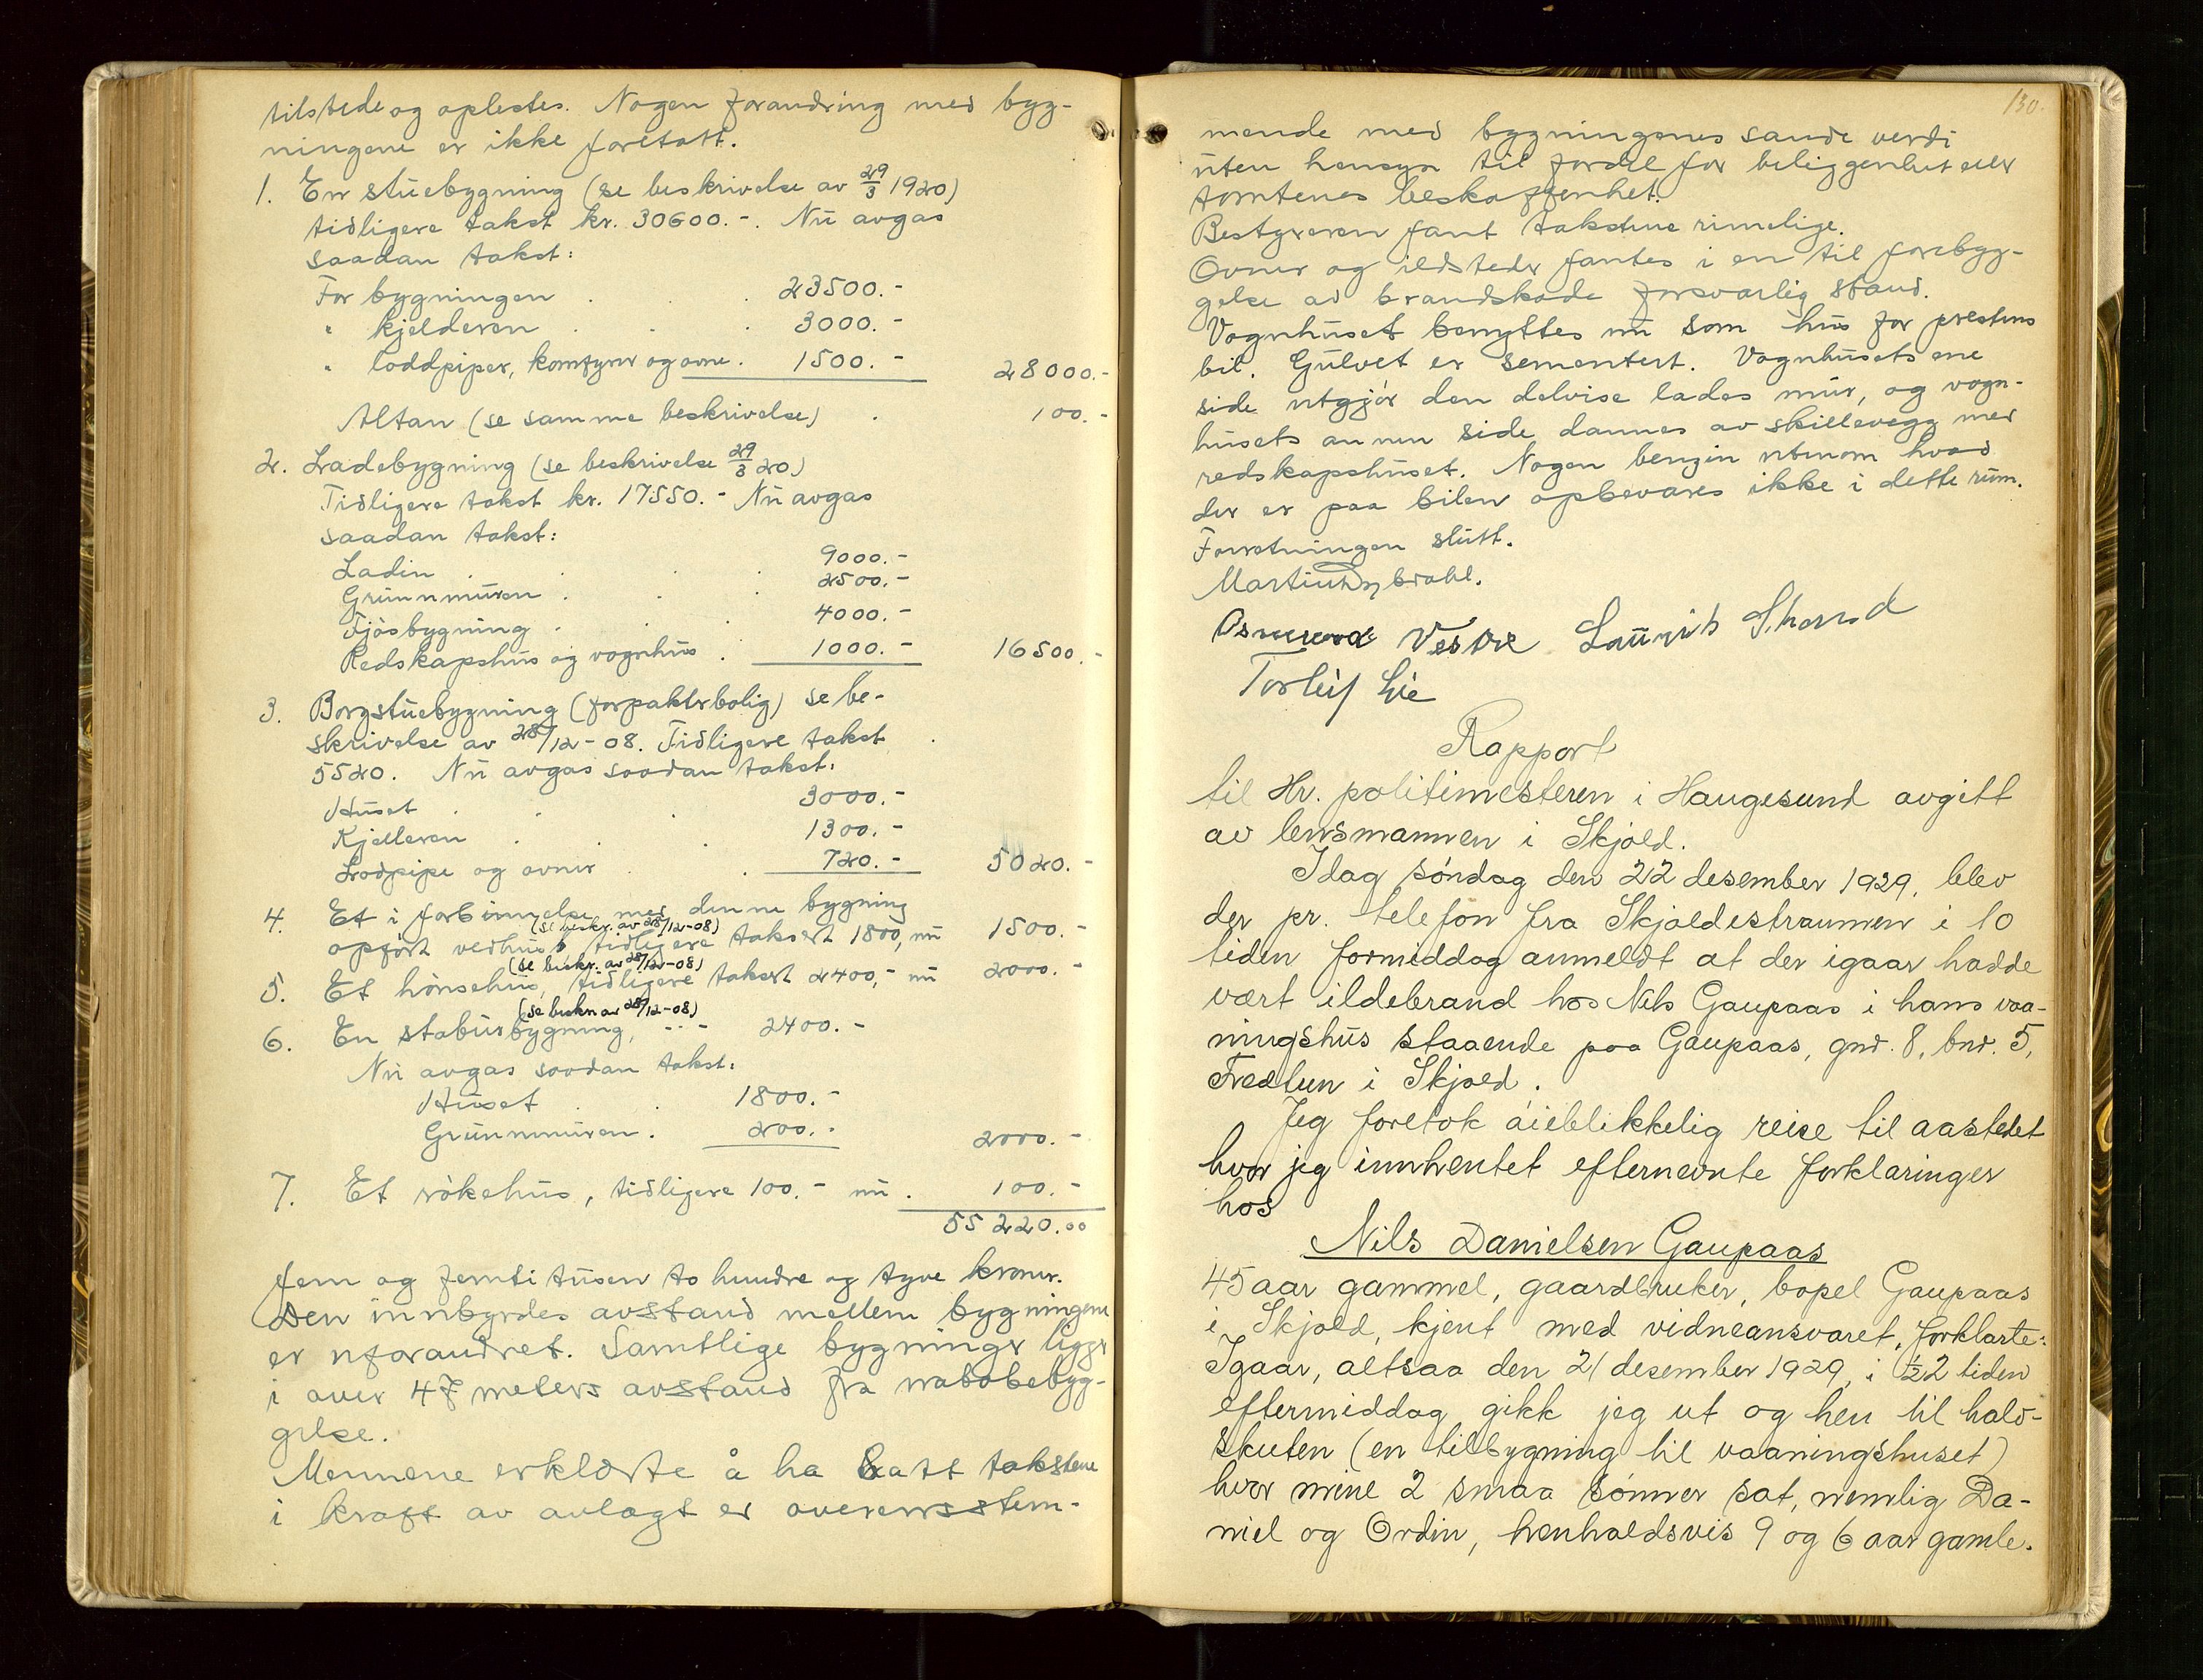 tilstede og oplestes. Nogen forandring med byg-
ningene er ikke foretatt.
1. En stuebygning (se beskrivelse av 29/3 1920)
tidligere takst kr. 30600.-. Nu avgas
saadan takst:
For bygningen . . . 23500.-
" kjelderen . . . 3000.-
" loddpiper, komfyrer og ovne. 1500.- 28000.-
Altan (se samme beskrivelse) . 100.-
2. Ladebygning (se beskrivelse 29/3 20)
Tidligere takst kr. 17550.- Nu avgas
saadan takst:
Ladin . . . . 9000.-
Grunnmuren . . . 2500.-
Fjøsbygning . . . 4000.-
Redskapshus og vognhus . 1000.- 16500.-
3. Borgstuebygning (forpakterbolig) se be-
skrivelse av 28/12-08. Tidligere takst
5520. Nu avgas saadan takst:
Huset . . . 3000.-
Kjelleren . . . 1300.-
Lodpipe og ovner . . 720.- 5020.-
4. Et i forbinnelse med denne bygning
(se beskr. av 28/12-08)
opført vedhus, tidligere taksert 1800, nu 1500.-
(se beskr. av 28/12-08)
5. Et hønsehus, tidligere taksert 2400,- nu 2000.-
(se beskr av 28/12-08)
6. En stabursbygning, - - - 2400.-
Nu avgas saadan takst:
Huset . . 1800.-
Grunnmuren. 200.- 2000.-
7. Et røkehus, tidligere 100.- nu . 100.-
55220.00
fem og femti tusen to hundre og tyve kroner.
Den innbyrdes avstand mellem bygningene
er uforandret. Samtlige bygninger ligger
i over 47 meters avstand fra nabobebyg-
gelse.
Mennene erklærte å ha satt takstene
i kraft av avlagt ed overensstem-
130.
mende med bygningenes sande verdi
uten hensyn til fordel for beliggenhet eller
tomtenes beskaffenhet.
Bestyreren fant takstene rimelige.
Ovner og ildsteder fantes i en til forebyg-
gelse av brandskade forsvarlig stand.
Vognhuset benyttes nu som hus for prestens
bil. Gulvet er sementert. Vognhusets ene
side utgjør den delvise lades mur, og vogn-
husets annen side dannes av skillevegg med
redskapshuset. Nogen benzin utenom hvad
der er paa bilen opbevares ikke i dette rum.
Forretningen slutt.
Martin Dybdahl.
Osmund Vestre Laurits Skorud
Torleif Lie
Rapport
til Hr. politimesteren i Haugesund avgitt
av lensmannen i Skjold.
Idag søndag den 22 desember 1929, blev
der pr. telefon fra Skjoldestraumen i 10
tiden formiddag anmeldt at der igaar hadde
vært ildebrand hos Nils Gaupaas i hans vaa-
ningshus staaende paa Gaupaas, gnr. 8, bnr. 5,
Fredtun i Skjold.
Jeg foretok øieblikkelig reise til aastedet
hvor jeg innhentet efternevnte forklaringer
hos
Nils Danielsen Gaupaas
45 aar gammel, gaardbruker, bopel Gaupaas
i Skjold, kjent med vidneansvaret, forklarte:
Igaar, altsaa den 21 desember 1929, i ½2 tiden
eftermiddag gikk jeg ut og hen til halv-
skuten (en tilbygning til vaaningshuset)
hvor mine 2 smaa sønner sat, nemlig Da-
niel og Ordin, henholdsvis 9 og 6 aar gamle.